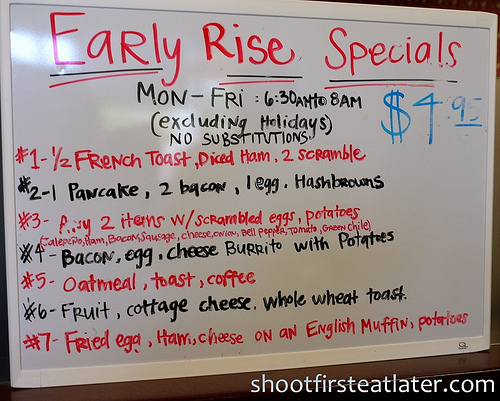 Early Rise Specials
MON-FRI: 6:30AM to 8AM
$4.95
(excluding Holidays)
NO SUBSTITUTIONS
#1-½ French Toast, Diced Ham, 2 scramble
#2-1 Pancake, 2 bacon, 1 egg, Hashbrowns
#3- Any 2 items w/scrambled eggs, potatoes
(Jalepeno, Ham, Bacon, Sausage, cheese, onion, Bell Pepper, Tomato, Green chile)
#4- Bacon, egg, cheese Burrito with Potatoes
#5- Oatmeal, toast, coffee
#6- Fruit, cottage cheese, whole wheat toast.
#7- Fried egg, Ham, cheese on an English Muffin, potatoes
shootfirsteatlater.com